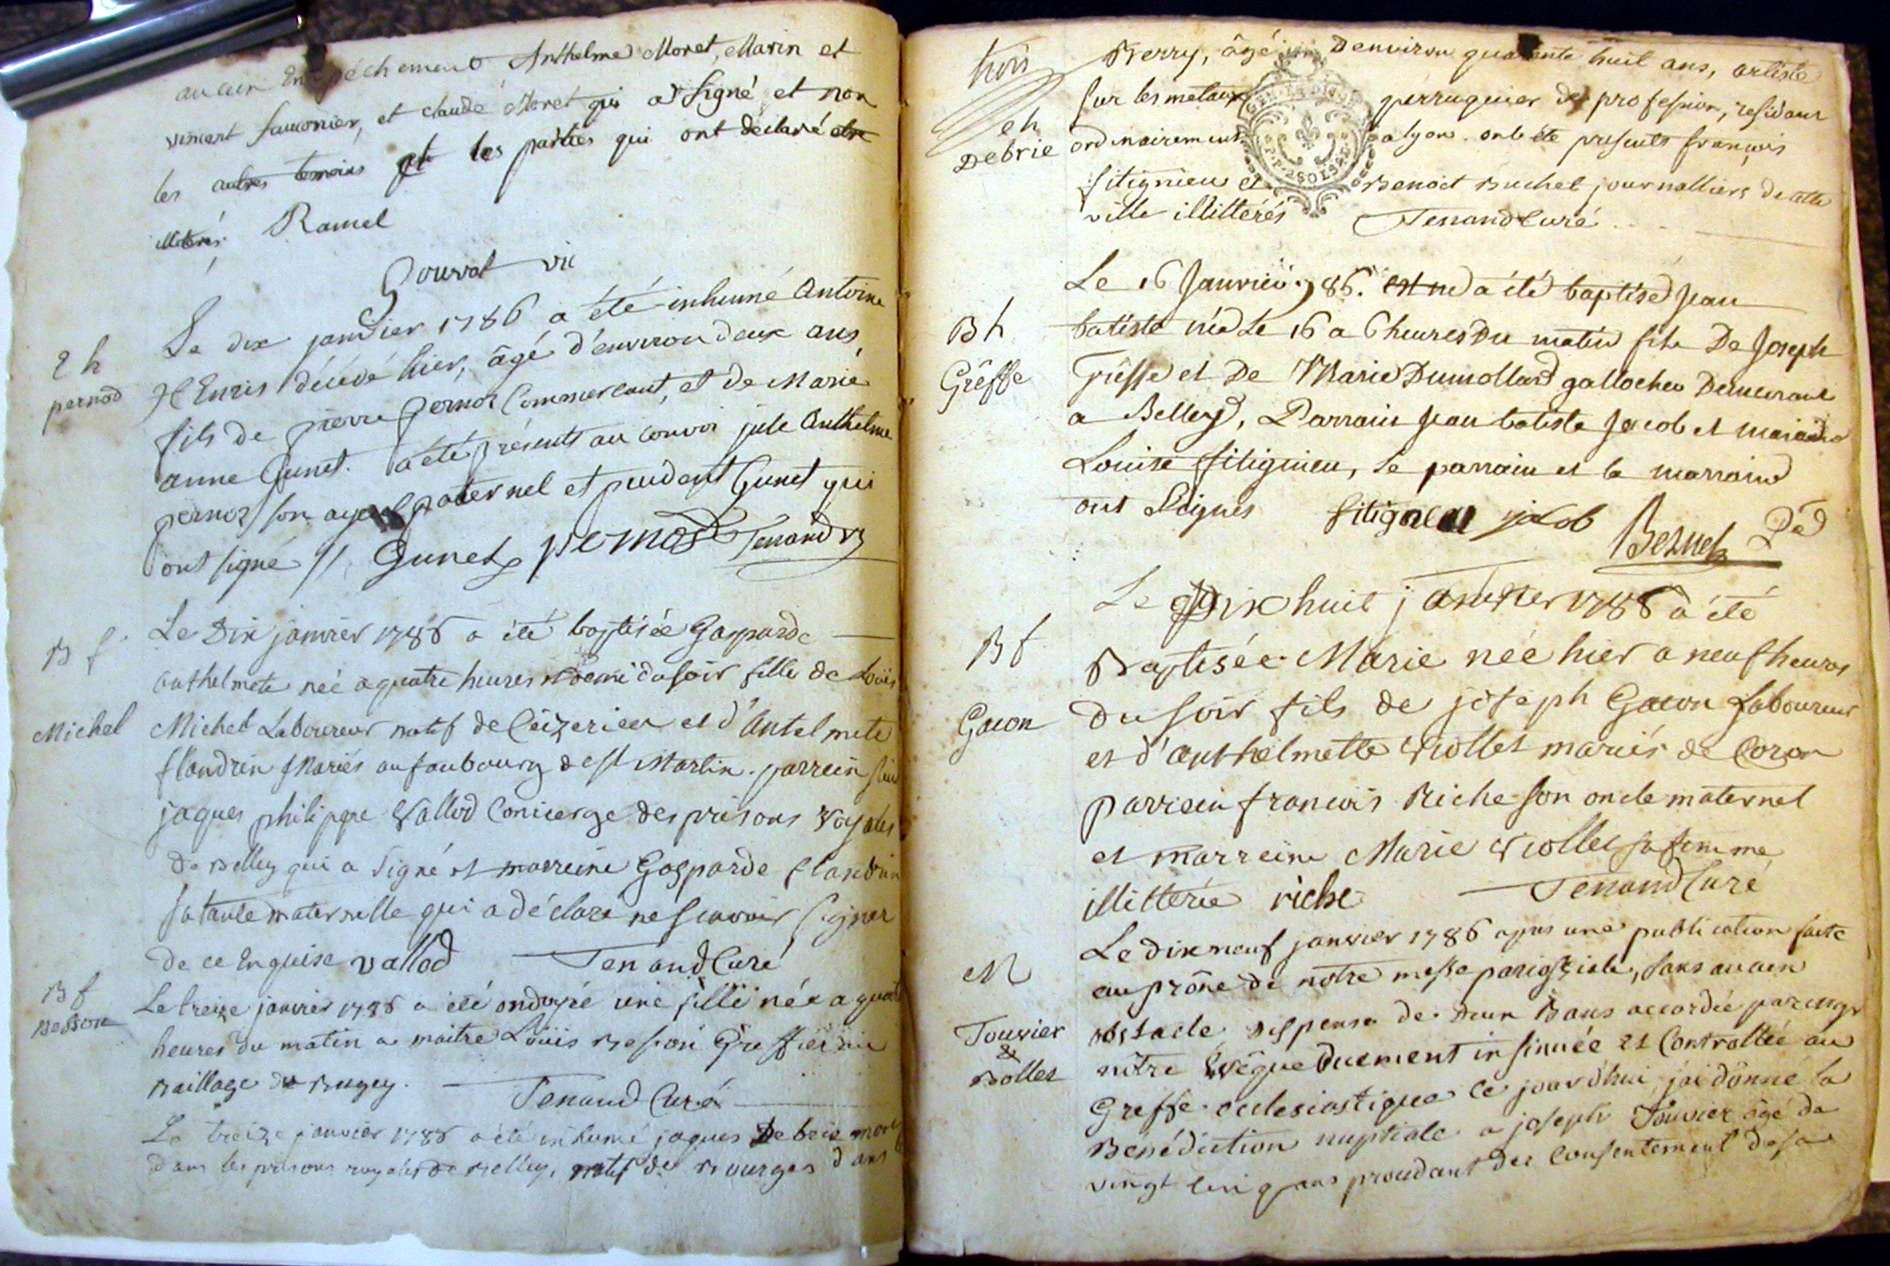 aucun Empéchement Anthelme Moret, Marin et
vincent saunonier, et claude Moret qui a Signé et non
les autres temoins et les parties qui ont declaré etre
illiterés Ramel
Gourval vic
2 h
pernod
Le dix janvier 1786 a été inhumé Antoine
HEnris décédé hier, âgé d'environ deux ans,
fils de pierre pernoz Commercant, et de Marie
anne Gunet. a été présents au convoi jule Anthelme
pernoz son ayeul paternel et prudent Gunet qui
ont signé // Gunet pernod Tenand
B f
Michel
Le Dix janvier 1786 a été baptisée Gasparde
Anthelmete née a quatre heures et demi du soir fille de Loüis
Michel Laboureur natif de Ceizerieu et d'Antelmete
flandrin Mariés au faubourg de st Martin. parrein
jaques philippe Vallod Concierge des prisons royales
de Belley qui a Signé et marreine Gasparde flandrin
sa tante maternelle qui a déclaré ne scavoir signer
de ce Enquise vallod Tenand Curé
B f
Besson
Le treize janvier 1786 a été ondoyée une fille née a quatre
heures du matin a maitre Loüis Besson Greffier au
Baillage de Bugey. Tenand Curé
Le treize janvier 1786 a été inhumé jaques Debrie mort
dans les prisons royales de Belley, natif de Bourges dans le
trois
e h
Debrie
Berry, âgé Denviron quarente huit ans, artiste
sur les metaux perruquier de profession, residant
ordinairement a lyon. ont été presents françois
fitignieu et Benoit Buchet journalliers de cette
ville illittérés Tenand Curé
B h
Grêffe
Le 16 Janvier 786. est né a été baptisé Jean
batiste né Le 16 a 6 heures Du matin fils De Joseph
Grêffe et De Marie Dumollard gallocheu Demeurant
a Belley, Parrain Jean batiste Jacob et maraine
Louise fitignieu, le parrain et la marraine
ont Signes fitignieu jacob Beznet
B f
Gacon
Le Dix huit janvier 1786 a été
Baptisée Marie née hier a neuf heures
du soir fils de joseph Gacon Laboureur
et d'anthelmette Viollet mariés de Coron
parrein francois Riche son oncle maternel
et marreine Marie Viollet sa femme
illittérée riche Tenand Curé
M
Touvier
&
Bollet
Le dix neuf janvier 1786 apres une publication faite
au prône de notre messe paroissiale, sans aucun
obstacle, dispense de deux Bans accordée par mgr
nôtre Evêque duement insinuée et Controllée au
Greffe ecclesiastique ce jourd'hui, j'ai dônné la
Bénédiction nuptiale a joseph Touvier âgé de
vingt cinq ans procedant du Consentement de sa